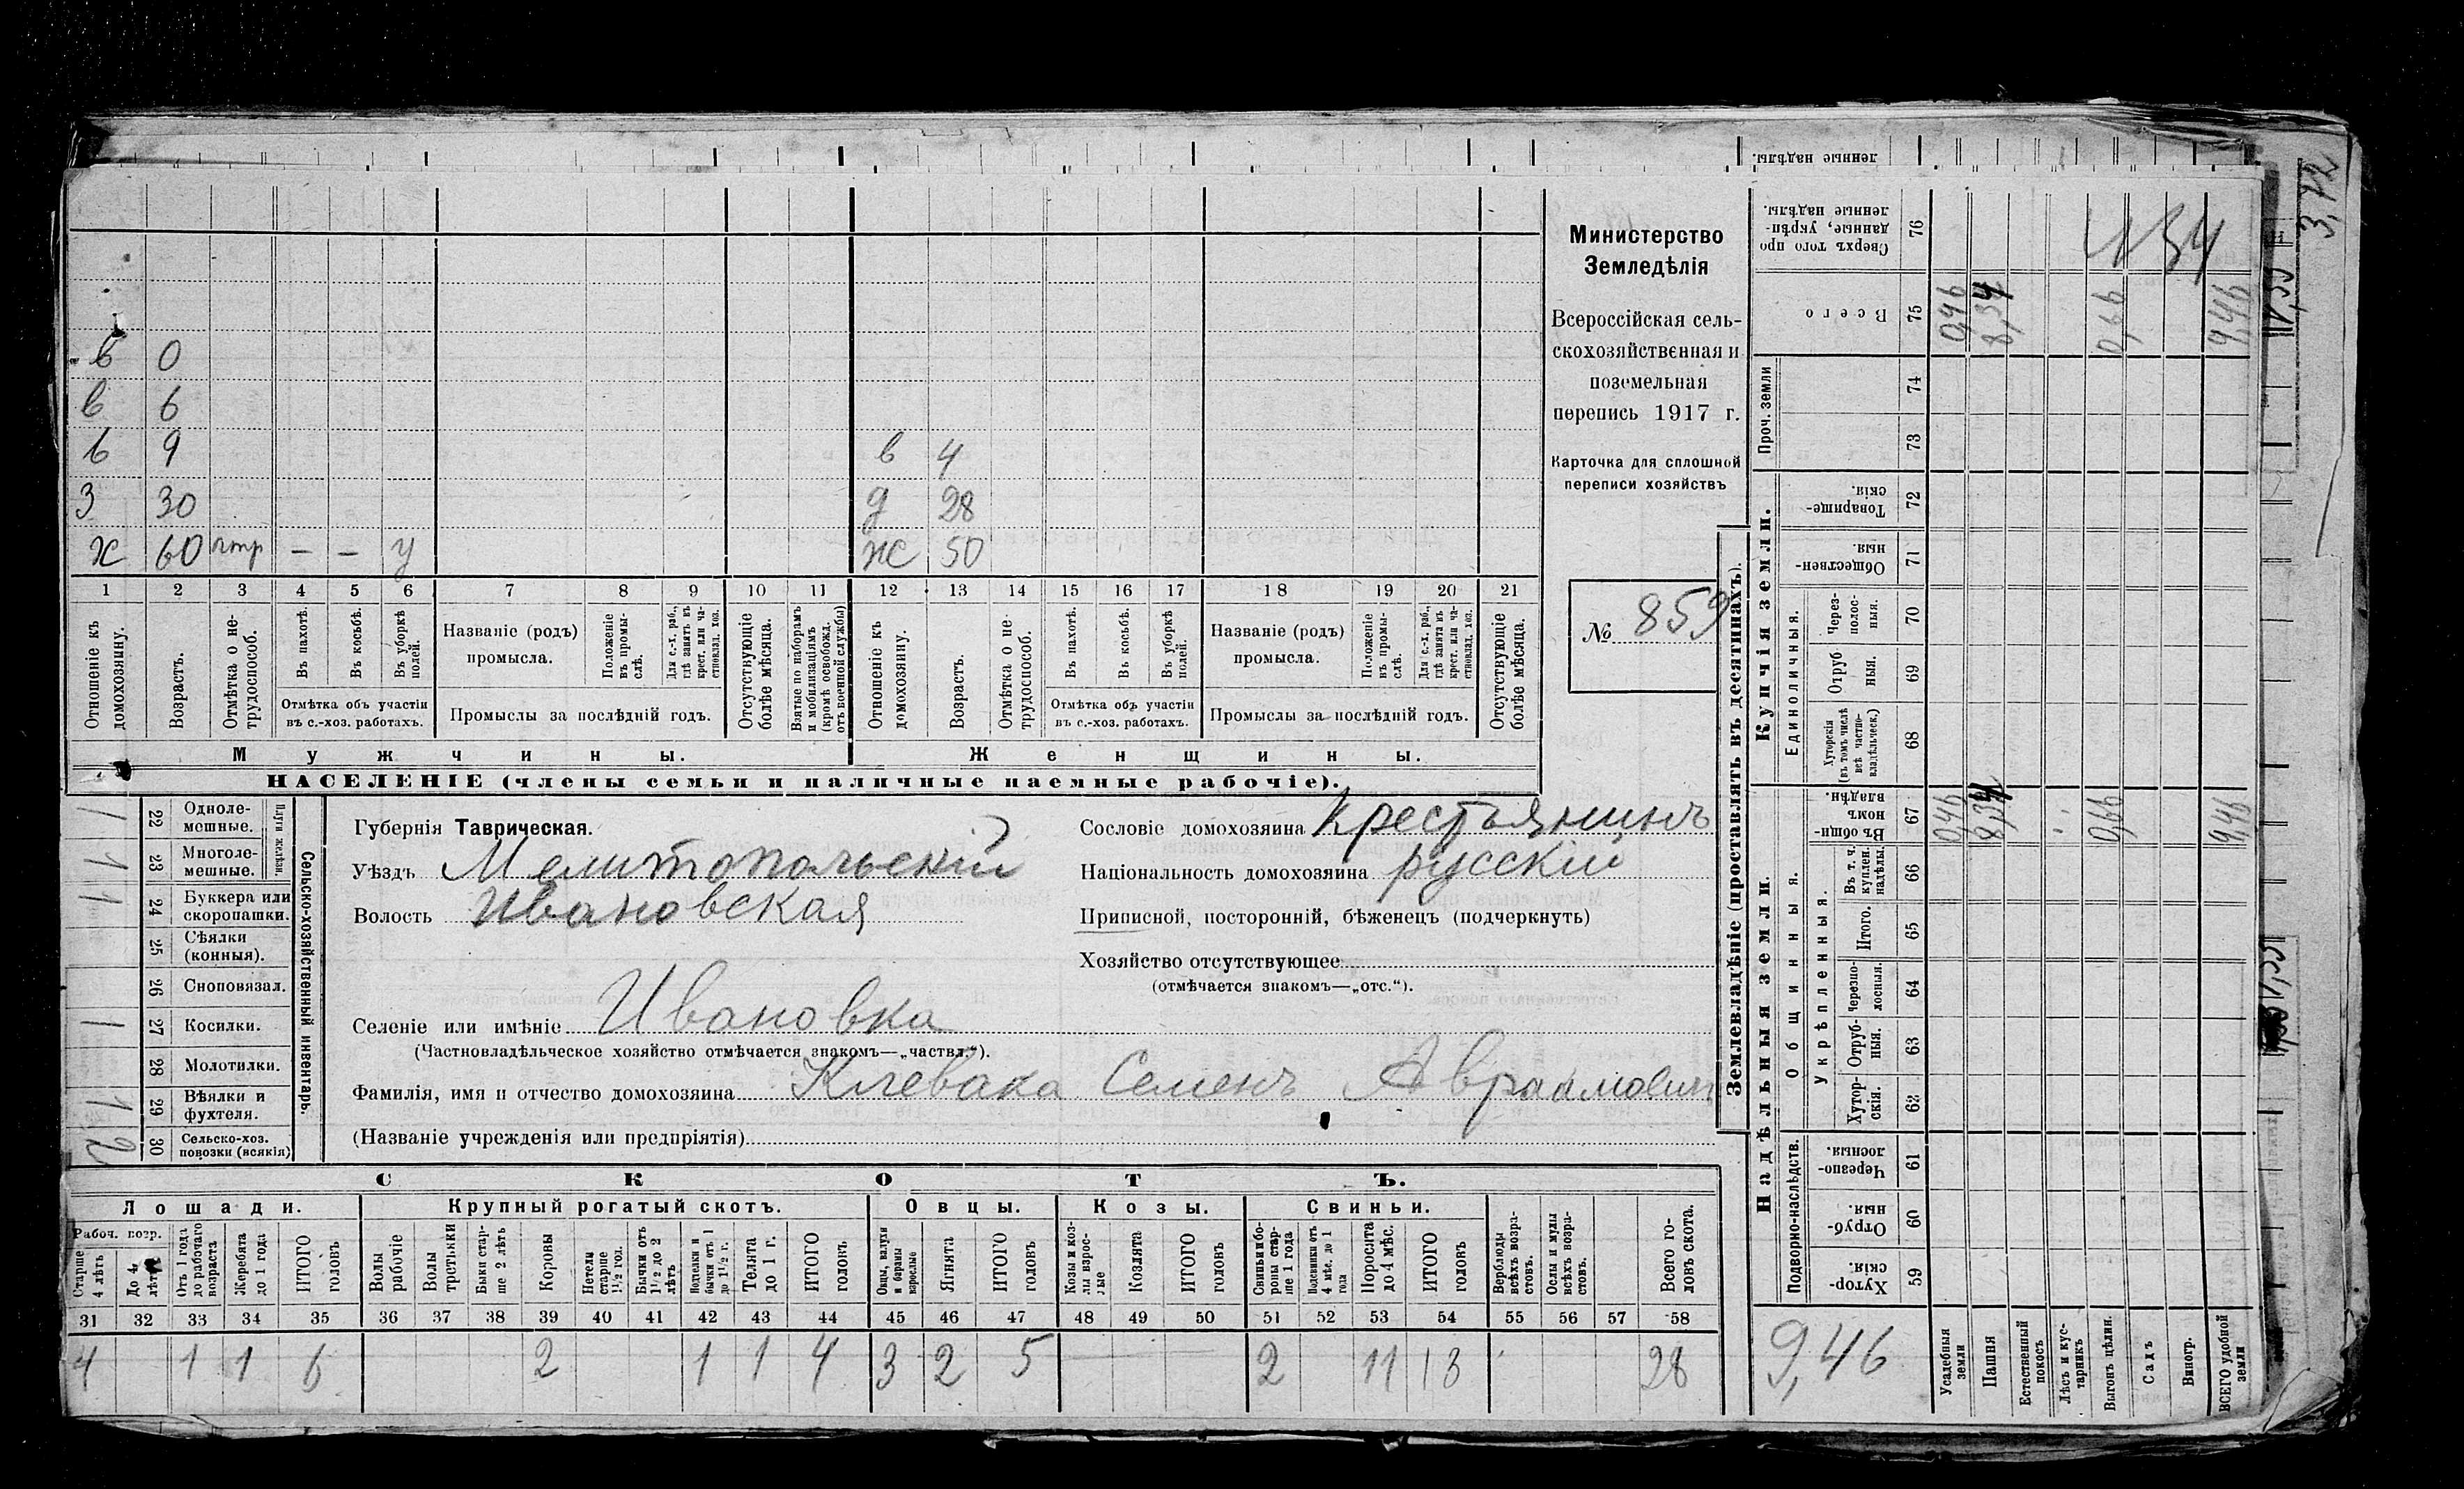 ленные надѣлы.
3,72
Министерство
Земледѣлія
Всероссійская сель-
скохозяйственная и
поземельная
перепись 1917 г.
Карточка для сплошной
переписи хозяйствъ
№ 859
в 0
в 6
в 9 в 4
З 30 д 28
х 60 — — у ж 50
1 2 3 4 5 6 7 8 9 10 11 12 13 14 15 16 17 18 19 20 21
Отношеніе къ домохозяину.
Возрастъ.
Отмѣтка о не-трудоспособ.
Въ пахотѣ.
Въ косьбѣ.
Въ уборкѣ полей.
Отмѣтка объ участіи
въ с.-хоз. работахъ.
Названіе (родъ)
промысла.
Положеніе въ промы-слѣ.
Для с.-х. раб., гдѣ занятъ въ крест. или ча-стновлад. хоз.
Промыслы за послѣдній годъ.
Отсутствующіе болѣе мѣсяца.
Взятые по наборамъ и мобилизаціямъ (кромѣ освобожд. отъ военной службы)
Отношеніе къ домохозяину.
Возрастъ.
Отмѣтка о не-трудоспособ.
Въ пахотѣ.
Въ косьбѣ.
Въ уборкѣ полей.
Отмѣтка объ участіи
въ с.-хоз. работахъ.
Названіе (родъ)
промысла.
Положеніе въ промы-слѣ.
Для с.-х. раб., гдѣ занята въ крест. или ча-стновлад. хоз.
Промыслы за послѣдній годъ.
Отсутствующіе болѣе мѣсяца.
Мужчины. Женщины.
НАСЕЛЕНІЕ (члены семьи и наличные наемные рабочіе).
Сельско-хозяйственный инвентарь.
Плуги желѣзн.
1 22 Одноле-мешные.
1 23 Многоле-мешные.
1 24 Буккера или скоропашки.
25 Сѣялки (конныя).
26 Сноповязал.
1 27 Косилки.
28 Молотилки.
1 29 Вѣялки и фухтеля.
2 30 Сельско-хоз. повозки (всякія)
Губернія Таврическая.
Уѣздъ Мелитопольскій
Волость Ивановская
Сословіе домохозяина Крестьянинъ
Національность домохозяина русскій
Приписной, посторонній, бѣженецъ (подчеркнуть)
Хозяйство отсутствующее
(отмѣчается знакомъ—„отс.“).
Селеніе или имѣніе Ивановка
(Частновладѣльческое хозяйство отмѣчается знакомъ—„частвл.“).
Фамилія, имя и отчество домохозяина Клевака Семенъ Авраамович
(Названіе учрежденія или предпріятія)
СКОТЪ.
Лошади. Крупный рогатый скотъ. Овцы. Козы. Свиньи.
Рабоч. возр.
Старше 4 лѣтъ
До 4 лѣтъ
Отъ 1 года до рабочаго возраста
Жеребята до 1 года
ИТОГО головъ
Волы рабочіе
Волы третьяки
Быки стар-ше 2 лѣтъ
Коровы
Нетели старше 1½ год.
Бычки отъ 1½ до 2 лѣтъ
Подтелки и бычки отъ 1 до 1½ г.
Телята до 1 г.
ИТОГО головъ
Овцы, валухи и бараны взрослые
Ягнята
ИТОГО головъ
Козы и коз-лы взрос-лые
Козлята
ИТОГО головъ
Свиньи и бо-ровы стар-ше 1 года
Подсвинки отъ 4 мѣс. до 1 года
Поросята до 4 мѣс.
ИТОГО головъ
Верблюды всѣхъ возра-стовъ.
Ослы и мулы всѣхъ возра-стовъ.
Всего го-ловъ скота.
31 32 33 34 35 36 37 38 39 40 41 42 43 44 45 46 47 48 49 50 51 52 53 54 55 56 57 58
4 1 1 6 2 1 1 4 3 2 5 2 11 13 28
Землевладѣніе (проставлять въ десятинахъ).
Сверхъ того про-данные, укрѣп-ленные надѣлы. 76
Всего 75 0,46 8,34 0,66 9,46
Проч. земли
74
73
Купчія земли.
Товарище-скія. 72
Обществен-ныя. 71
Единоличныя.
Через-полос-ныя. 70
Отруб-ныя. 69
Хуторскія (въ томъ числѣ всѣ частно-владѣльческ.) 68
Надѣльныя земли.
Общинныя.
Въ общин-номъ владѣн. 67 0,46 8,34 0,66 9,46
Укрѣпленныя.
Въ т. ч. куплен. надѣлы. 66
Итого. 65
Черезпо-лосныя. 64
Отруб-ныя. 63
Хутор-скія. 62
Подворно-наслѣдств.
Черезпо-лосныя. 61
Отруб-ныя. 60
Хутор-скія. 59
9,46
Усадебныя земли
Пашня
Естественный покосъ
Лѣсъ и кус-тарникъ
Выгонъ цѣлин.
Садъ
Виногр.
ВСЕГО удобной земли